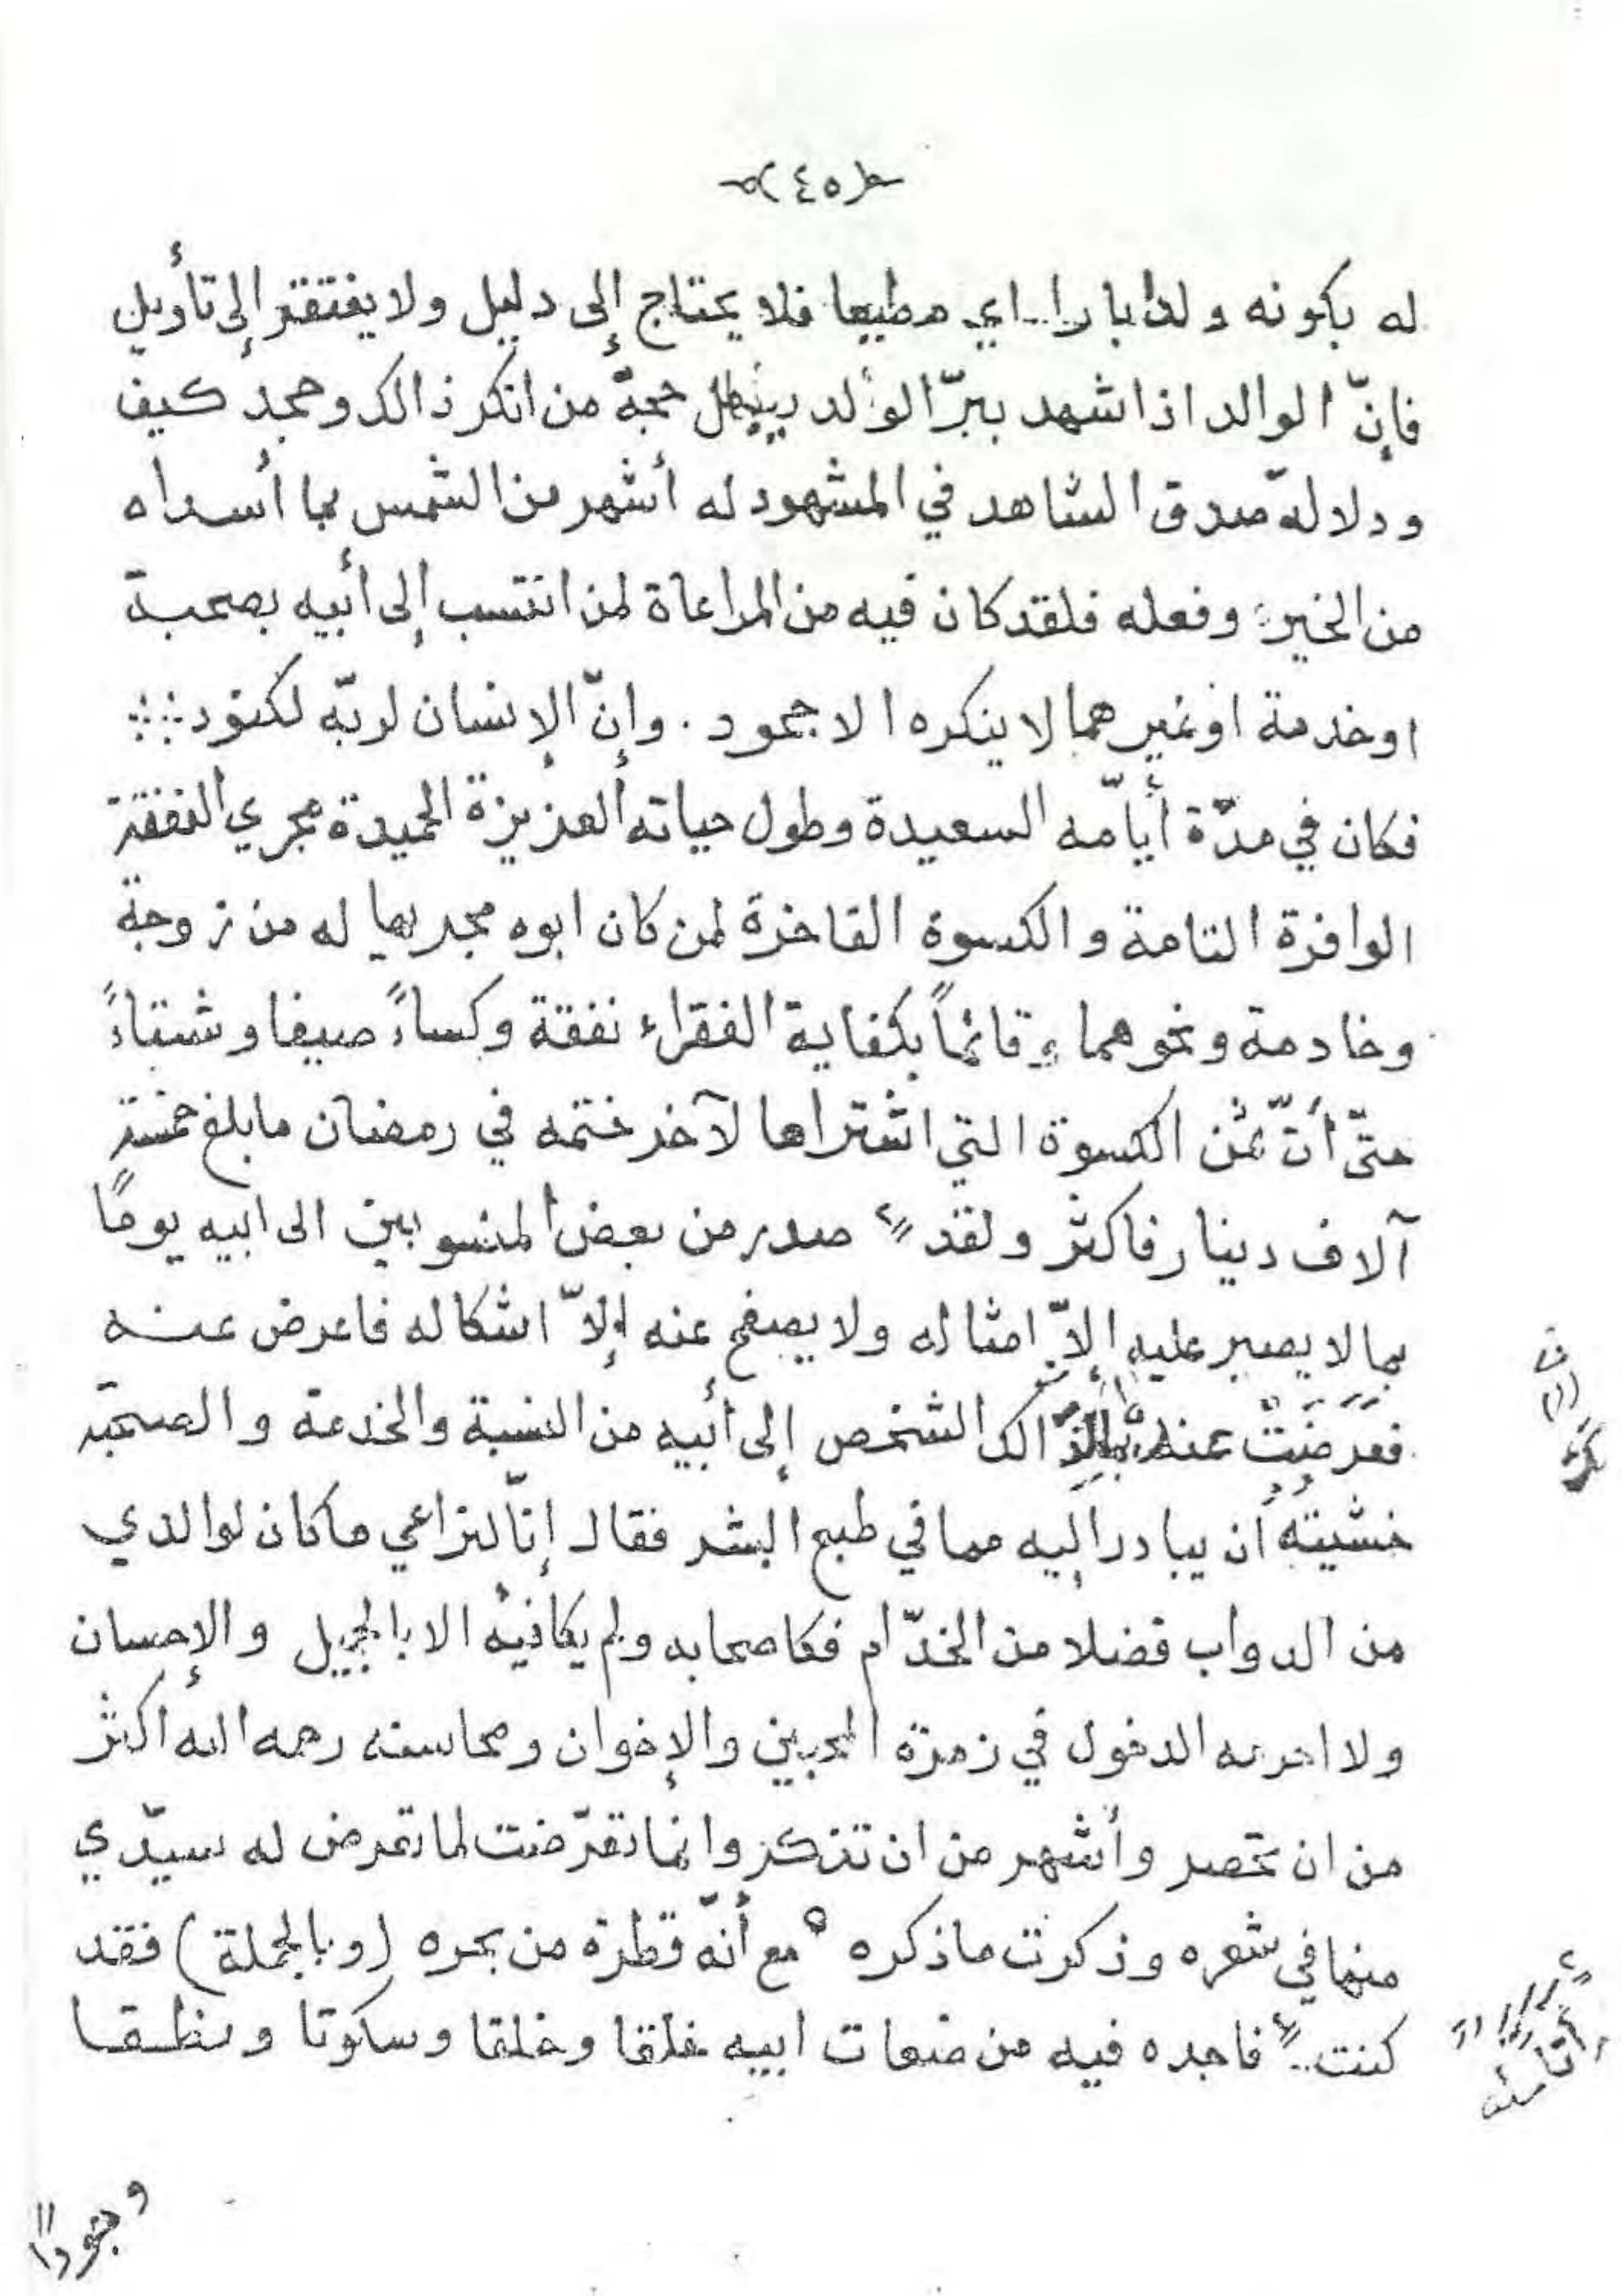 (٤٥)
له بكونه ولدا بارا اي مطيعا فلا يحتاج إلى دليل ولا يفتقر إلى تأويل
فإنّ الوالد اذا شهد ببرّ الولد يبطل حجة من انكر ذالك وجحد كيف
ودلالة صدق الشاهد في المشهود له أشهر من الشمس بما أسداه
من الخير وفعله فلقد كان فيه من المراعاة لمن انتسب إلى أبيه بصحبة
اوخدمة اوغيرهما لا ينكره الا جحود. وإنّ الإنسان لربّه لكنود
فكان في مدّة أيّامه السعيدة وطول حياته العزيزة الحميدة مجري النفقة
الوافرة التامة والكسوة الفاخرة لمن كان ابوه مجريها له من زوجة
وخادمة ونحوهما وقائماً بكفاية الفقراء نفقة وكساءً صيفا وشتاءً
حتّى أنّ ثمن الكسوة التي اشتراها لآخر ختمه في رمضان ما بلغ خمسة
آلاف دينار فاكثر ولقد صدر من بعض المنسوبين الى ابيه يوما
بما لا يصبر عليه إلاّ امثاله ولا يصفح عنه إلاّ اشكاله فاعرض عنه
فعرضت عنده ذالك الشخص إلى أبيه من النسبة والخدمة والصحبة
خشيته أن يبادر إليه مما في طبع البشر فقال إنّا لنراعي ما كان لوالدي
من الدواب فضلا من الخدّام فكاصحابه ولم يكافيه الا بالجميل والإحسان
ولا احرمه الدخول في زمرة المحبين والإخوان ومحاسنه رحمه الله اكثر
من ان تحصر وأشهر من ان تذكر وانما تعرّضت لما تعرض له سيّدي
منها في شعره وذكرت ما ذكره مع أنّه قطرة من بحره (وبالجملة) فقد
كنت فاجده فيه من صفات ابيه خلقا وخلقا وسكوتا ونطقا
وجودًا